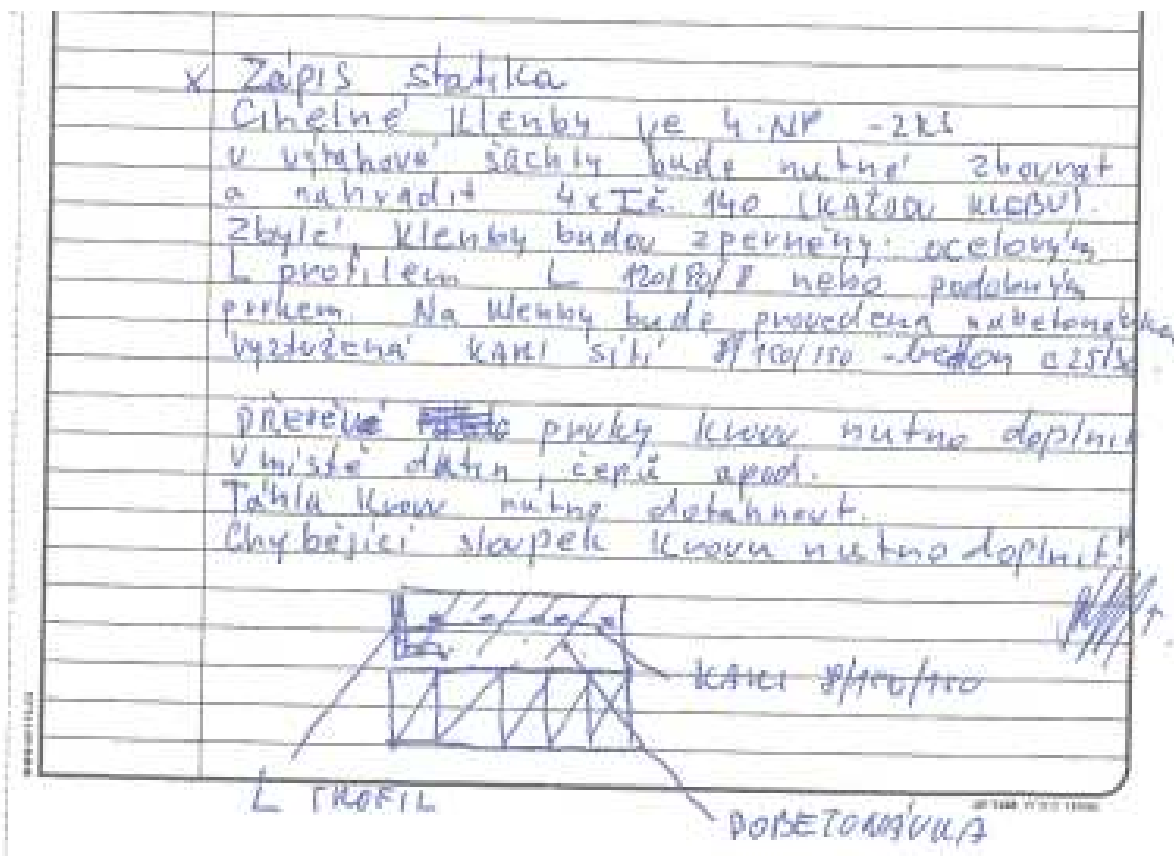 x Zápis statika
Cihelné klenby ve 4.NP - 2ks
u výtahové šachty bude nutné zbourat
a nahradit 4x Ič. 140 (KAŽDOU KLEBU).
Zbylé klenby budou zpevněny ocelovým
L profilem L 120/80/8 nebo podobným
prvkem. Na klenby bude provedena nabetonávka
vyztužená KARI sítí 8/150/150 - beton c 25/30
prvky krovu nutno doplnit
v místě dutin, čepů apod.
Táhla krovu nutno dotáhnout.
Chybějící sloupek krovu nutno doplnit!
KARI 8/150/150
L PROFIL
DOBETONÁVKA